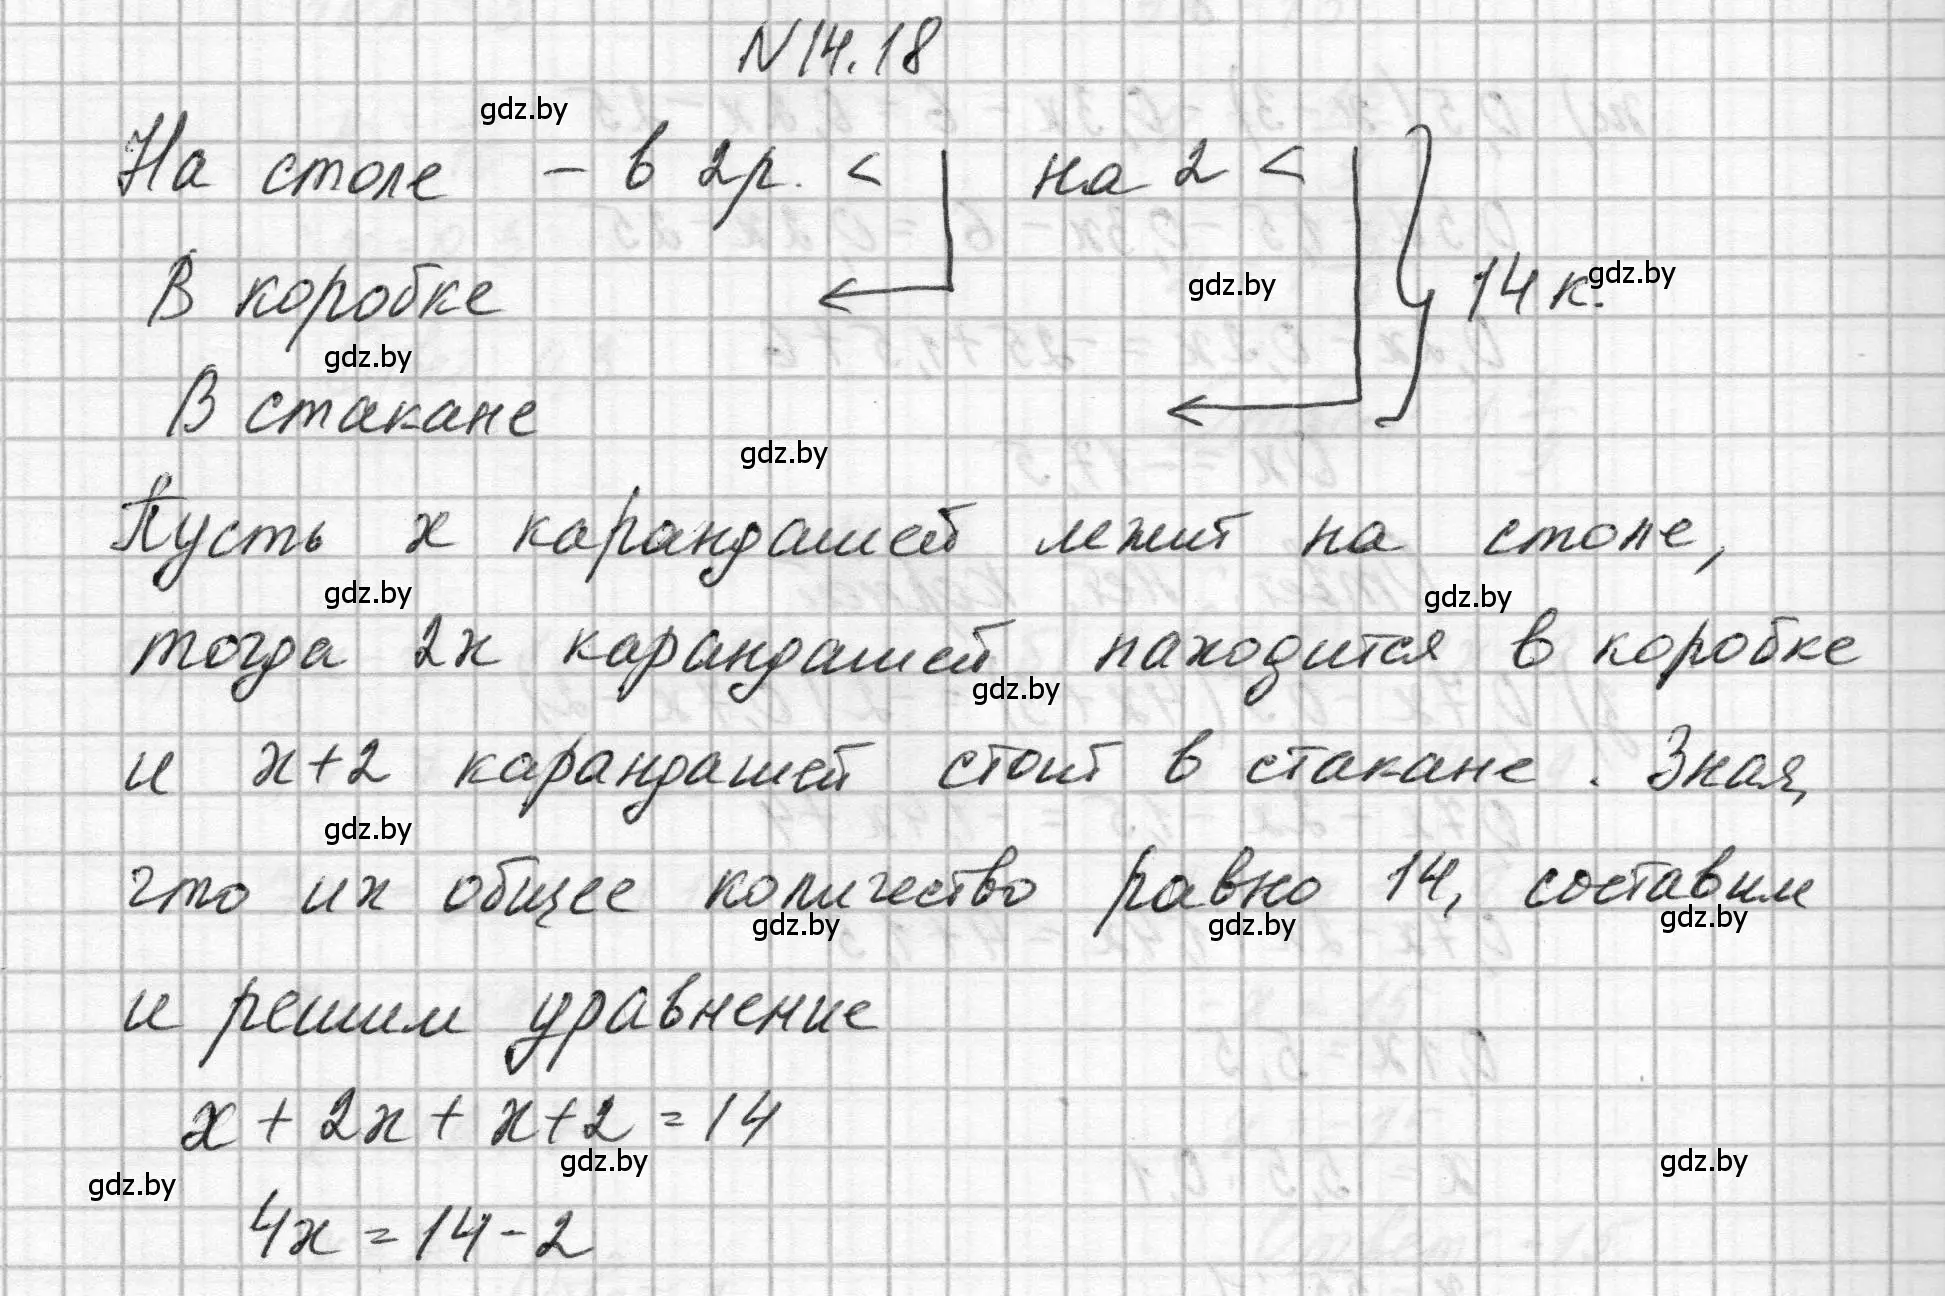 N 14.18
gdz.by
На столе – в 2 р. < на 2 <
В коробке
gdz.by
gdz.by
14 к.
gdz.by
В стакане
gdz.by
Пусть x карандашей лежит на столе,
gdz.by
gdz.by
тогда 2x карандашей находится в коробке
gdz.by
и x+2 карандашей стоит в стакане. Зная,
gdz.by
что их общее количество равно 14, составим
gdz.by
gdz.by
gdz.by
и решим уравнение
x + 2x + x + 2 = 14
gdz.by
gdz.by
gdz.by
4x = 14 - 2